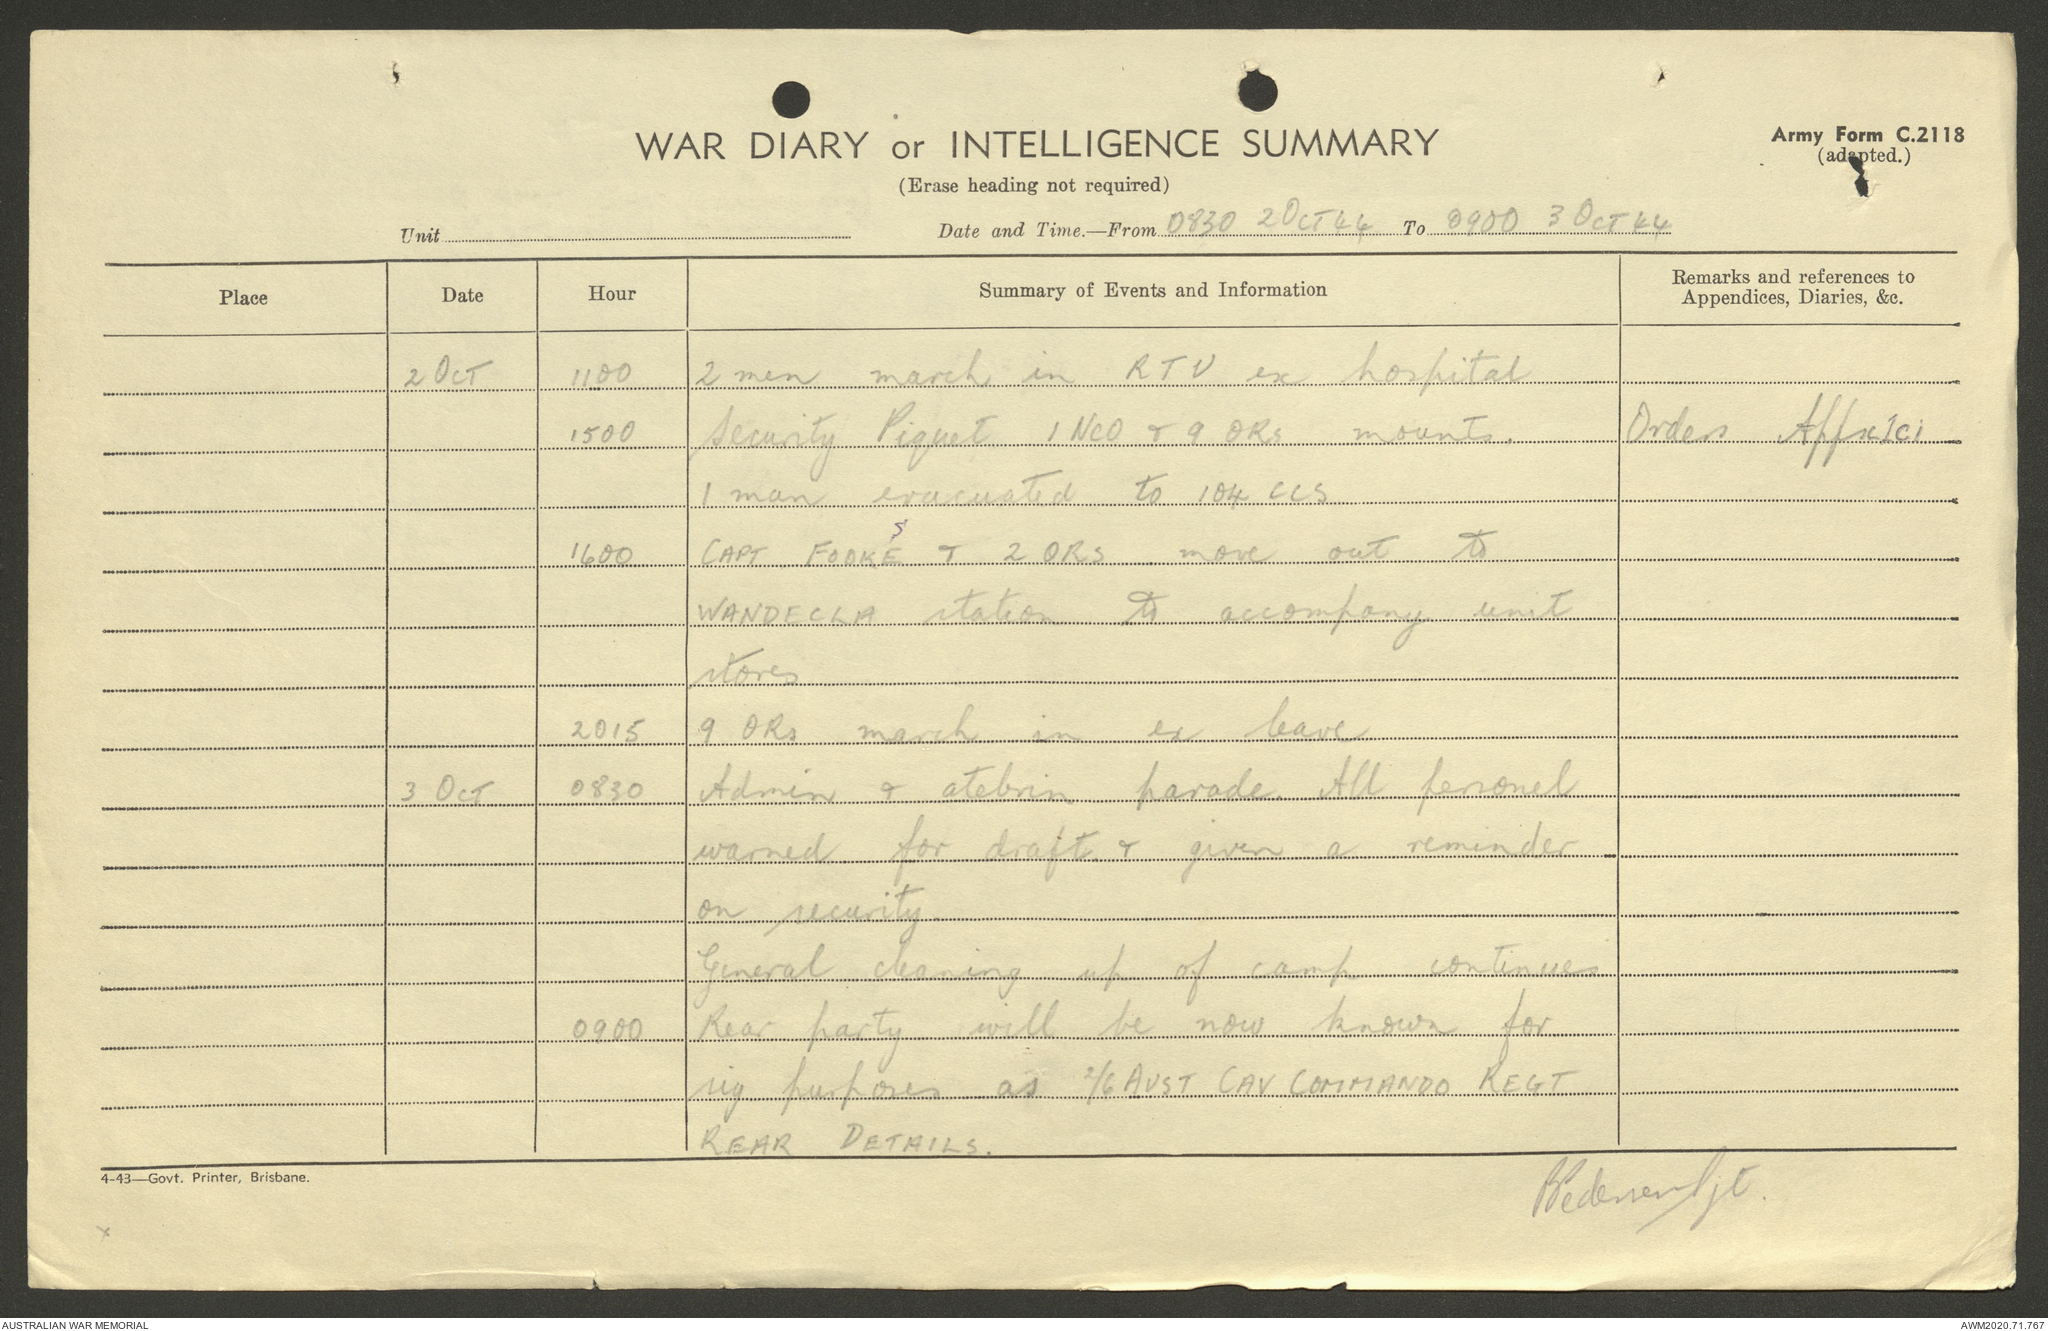 WAR DIARY or INTELLIGENCE SUMMARY
Army Form C.2118
(adapted.)
(Erase heading not required)
Unit
Date and Time.—From 0830 2 OCT 44 To 0900 3 OCT 44
Place Date Hour Summary of Events and Information Remarks and references to Appendices, Diaries, &c.
2 OCT 1100 2 men march in RTU ex hospital
1500 Security Piquet 1 NCO & 9 ORs mounts. Orders
1 man evacuated to 104 CCS
1600 CAPT FOOKES & 2 ORs move out to
WANDECLA station to accompany unit
stores
2015 9 ORs march in ex leave
3 OCT 0830 Admin & atebrin parade. All personel
warned for draft & given a reminder
on security.
General cleaning up of camp continues
0900 Rear party will be now known for
sig purposes as 2/6 AUST CAV COMMANDO REGT
REAR DETAILS.
4-43—Govt. Printer, Brisbane.
AUSTRALIAN WAR MEMORIAL
AWM2020.71.767